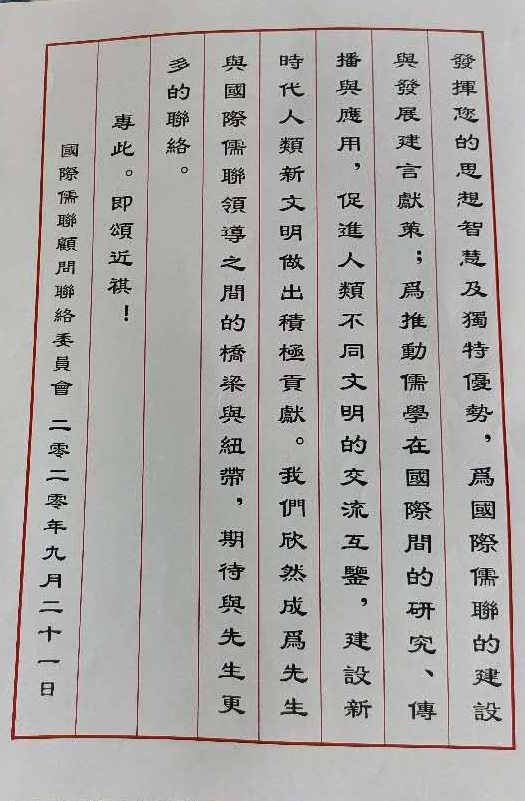 發揮您的思想智慧及獨特優勢，爲國際儒聯的建設
與發展建言獻策；爲推動儒學在國際間的研究、傳
播與應用，促進人類不同文明的交流互鑒，建設新
時代人類新文明做出積極貢獻。我們欣然成爲先生
與國際儒聯領導之間的橋梁與紐帶，期待與先生更
多的聯絡。
專此。即頌近祺！
國際儒聯顧問聯絡委員會 二零二零年九月二十一日